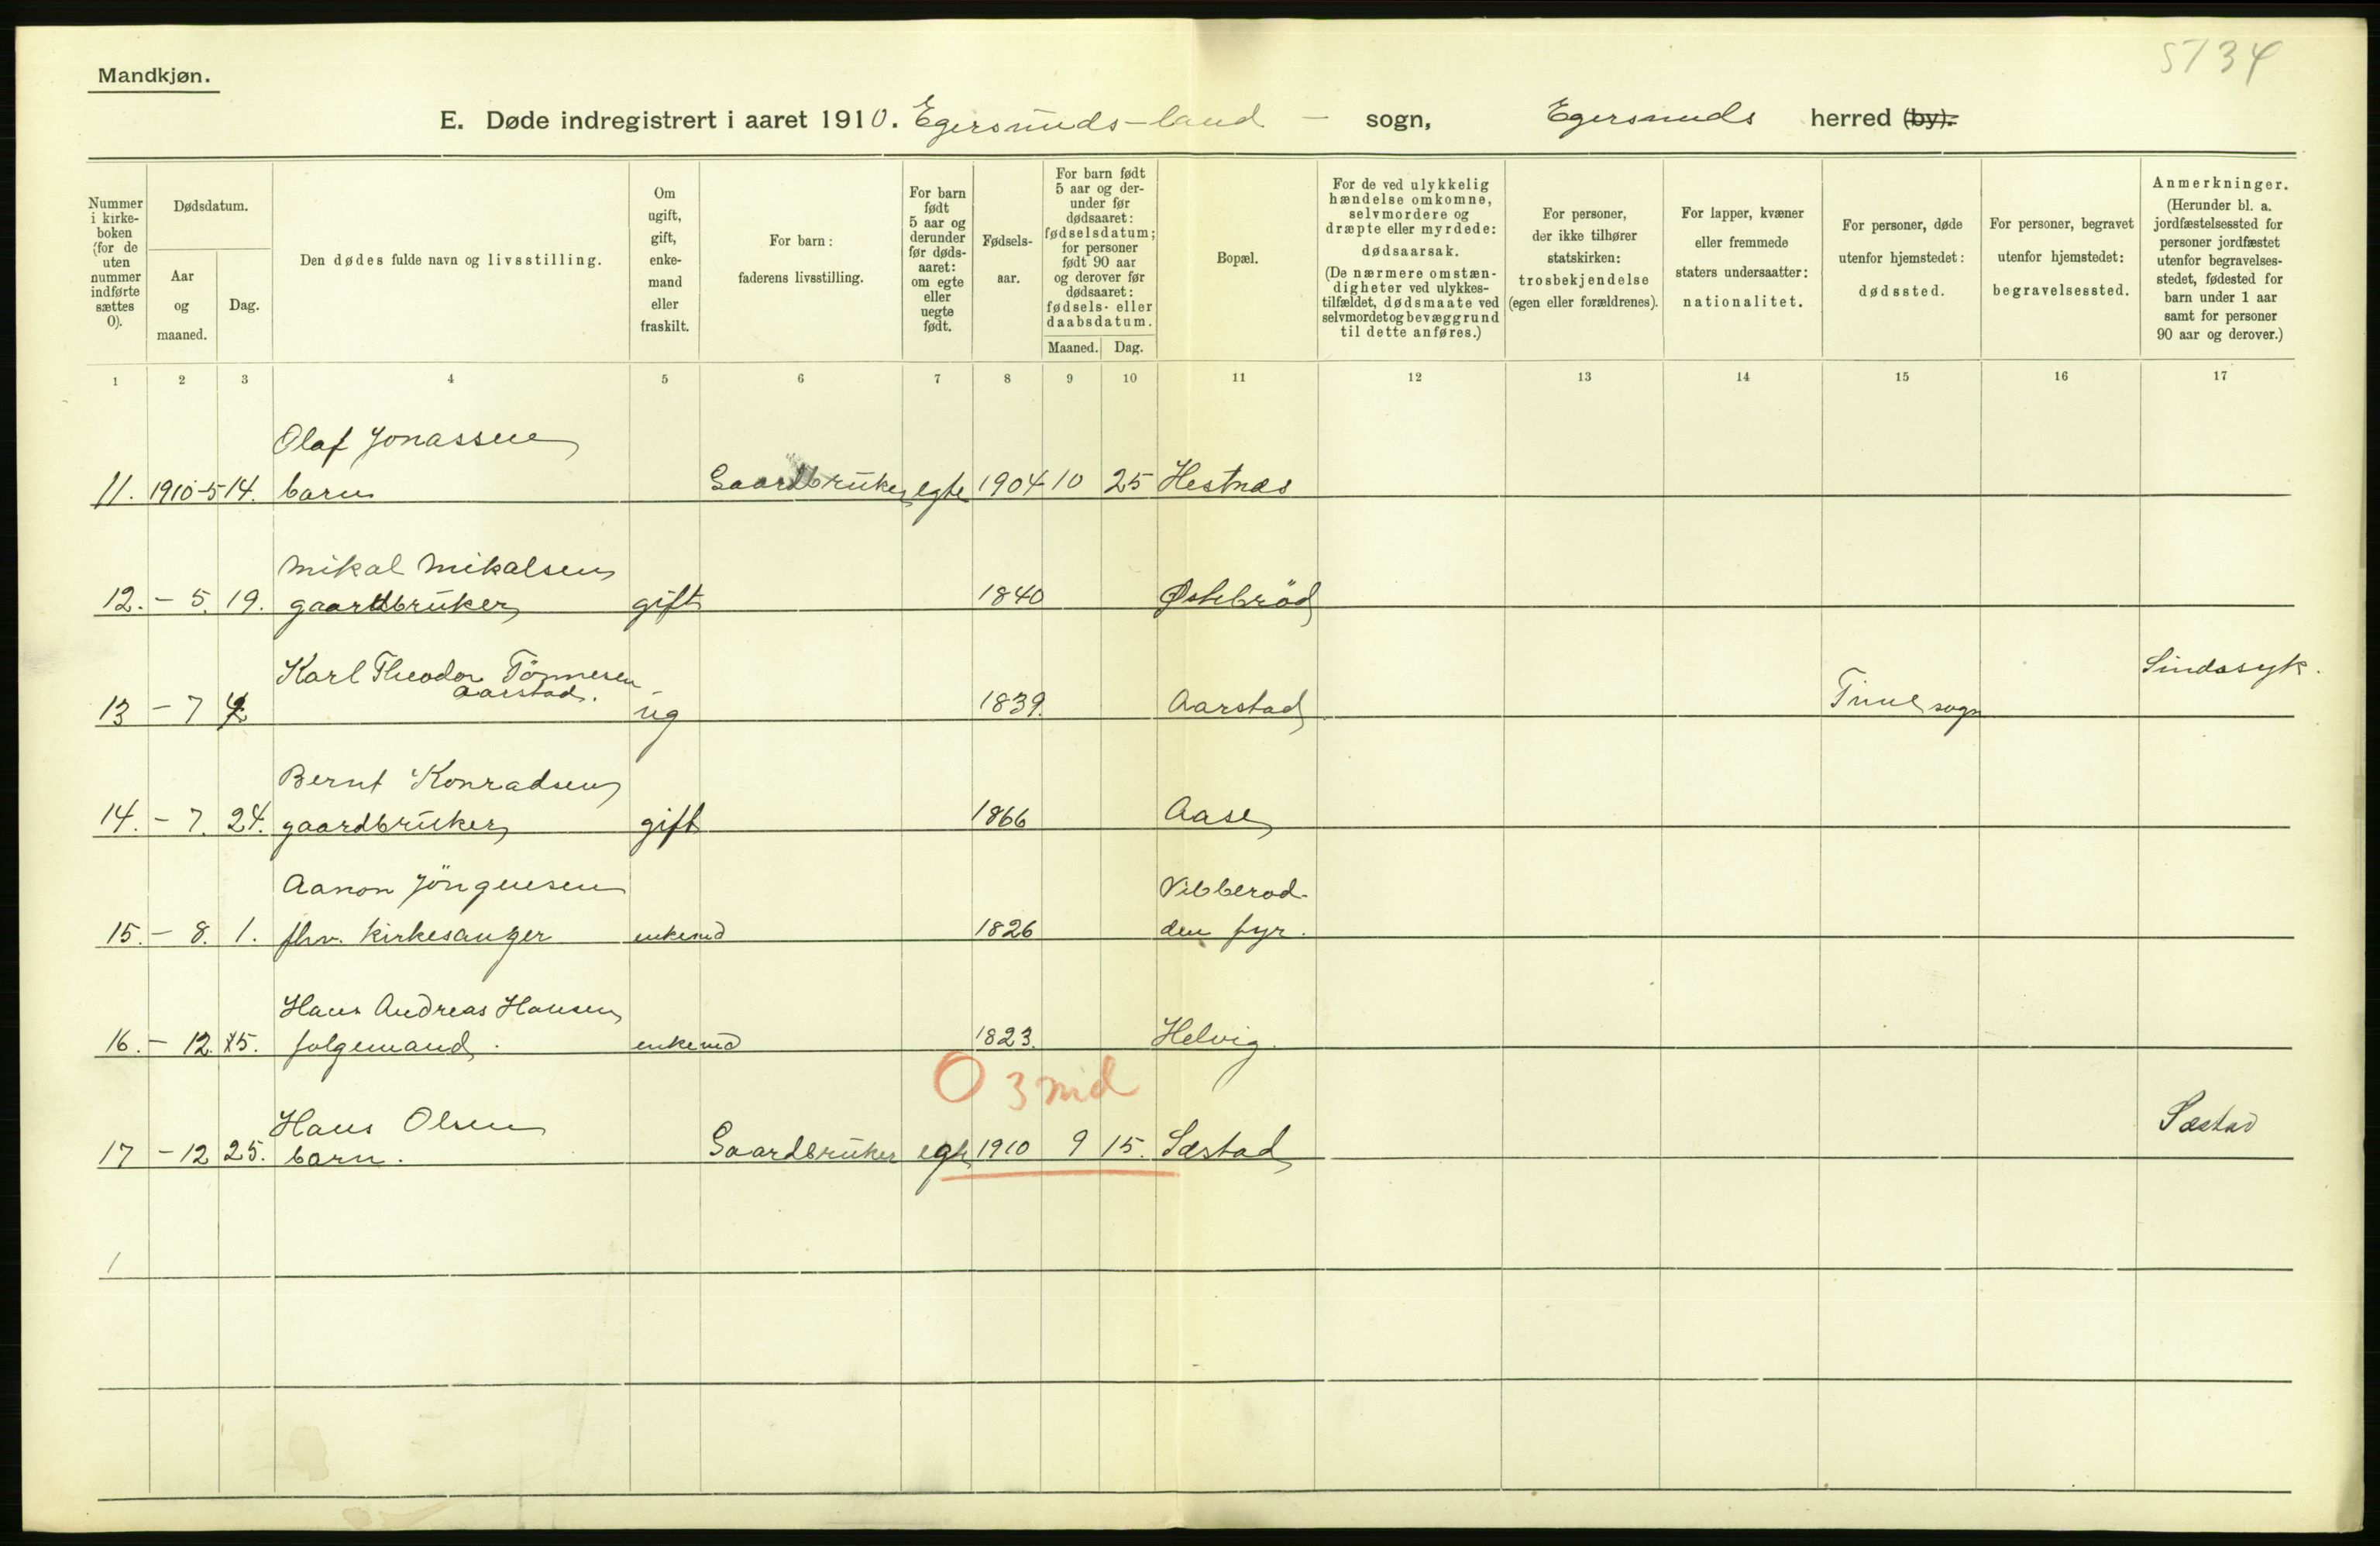 5734
Mandkjøn.
E. Døde indregistrert i aaret 1910. Egersunds-land – sogn, Egersunds herred (by).
Nummer i kirke-boken (for de uten nummer indførte sættes 0).
Dødsdatum.
Aar og maaned.
Dag.
Den dødes fulde navn og livsstilling.
Om ugift, gift, enke-mand eller fraskilt.
For barn: faderens livsstilling.
For barn født 5 aar og derunder før døds-aaret: om egte eller uegte født.
Fødsels-aar.
For barn født 5 aar og der-under før dødsaaret: fødselsdatum; for personer født 90 aar og derover før dødsaaret: fødsels- eller daabsdatum.
Maaned. Dag.
Bopæl.
For de ved ulykkelig hændelse omkomne, selvmordere og dræpte eller myrdede: dødsaarsak. (De nærmere omstæn-digheter ved ulykkes-tilfældet, dødsmaate ved selvmordet og bevæggrund til dette anføres.)
For personer, der ikke tilhører statskirken: trosbekjendelse (egen eller forældrenes).
For lapper, kvæner eller fremmede staters undersaatter: nationalitet.
For personer, døde utenfor hjemstedet: dødssted.
For personer, begravet utenfor hjemstedet: begravelsessted.
Anmerkninger. (Herunder bl. a. jordfæstelsessted for personer jordfæstet utenfor begravelses-stedet, fødested for barn under 1 aar samt for personer 90 aar og derover.)
1 2 3 4 5 6 7 8 9 10 11 12 13 14 15 16 17
Olaf Jonassen
11. 1910-5 14. barn Gaardbruker egte 1904 10 25 Hestnæs
Mikal Mikalsen
12. – 5. 19. gaardbruker gift 1840 Østebröd
Karl Theodor Tönnesen Sindssyk.
Aarstad.
13 – 7 ug 1839. Aarstad Time sogn
Bernt Konradsen
14. – 7. 24. gaardbruker gift 1866 Aase
Aanon Jörgensen Vibberod-
15. – 8. 1. fhv. kirkesanger enkemd 1826 den fyr.
Hans Andreas Hansen
16. – 12. 15. folgemand. enkemd 1823. Helvig.
O 3 md
Hans Olsen Sæstad
17 – 12 25. barn. Gaardbruker egte 1910 9 15. Sæstad
1